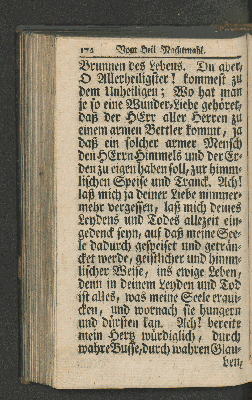 174 Vom Heil. Nachtmahl.
Brunnen des Lebens. Du aber,
O Allerheiligster! kommest zu
dem Unheiligen; Wo hat man
je so eine Wunder-Liebe gehöret,
daß der HErr aller Herren zu
einem armen Bettler kommt, ja
daß ein solcher armer Mensch
den HErrn Himmels und der Er-
den zu eigen haben soll, zur himm-
lischen Speise und Tranck. Ach!
laß mich ja deiner Liebe nimmer-
mehr vergessen, laß mich deines
Leydens und Todes allezeit ein-
gedenck seyn, auf daß meine See-
le dadurch gespeiset und geträn-
cket werde, geistlicher und himm-
lischer Weise, ins ewige Leben,
denn in deinem Leyden und Tod
ist alles, was meine Seele erqui-
cken, und wornach sie hungern
und dürsten kan. Ach! bereite
mein Hertz würdiglich, durch
wahre Busse, durch wahren Glau-
ben,